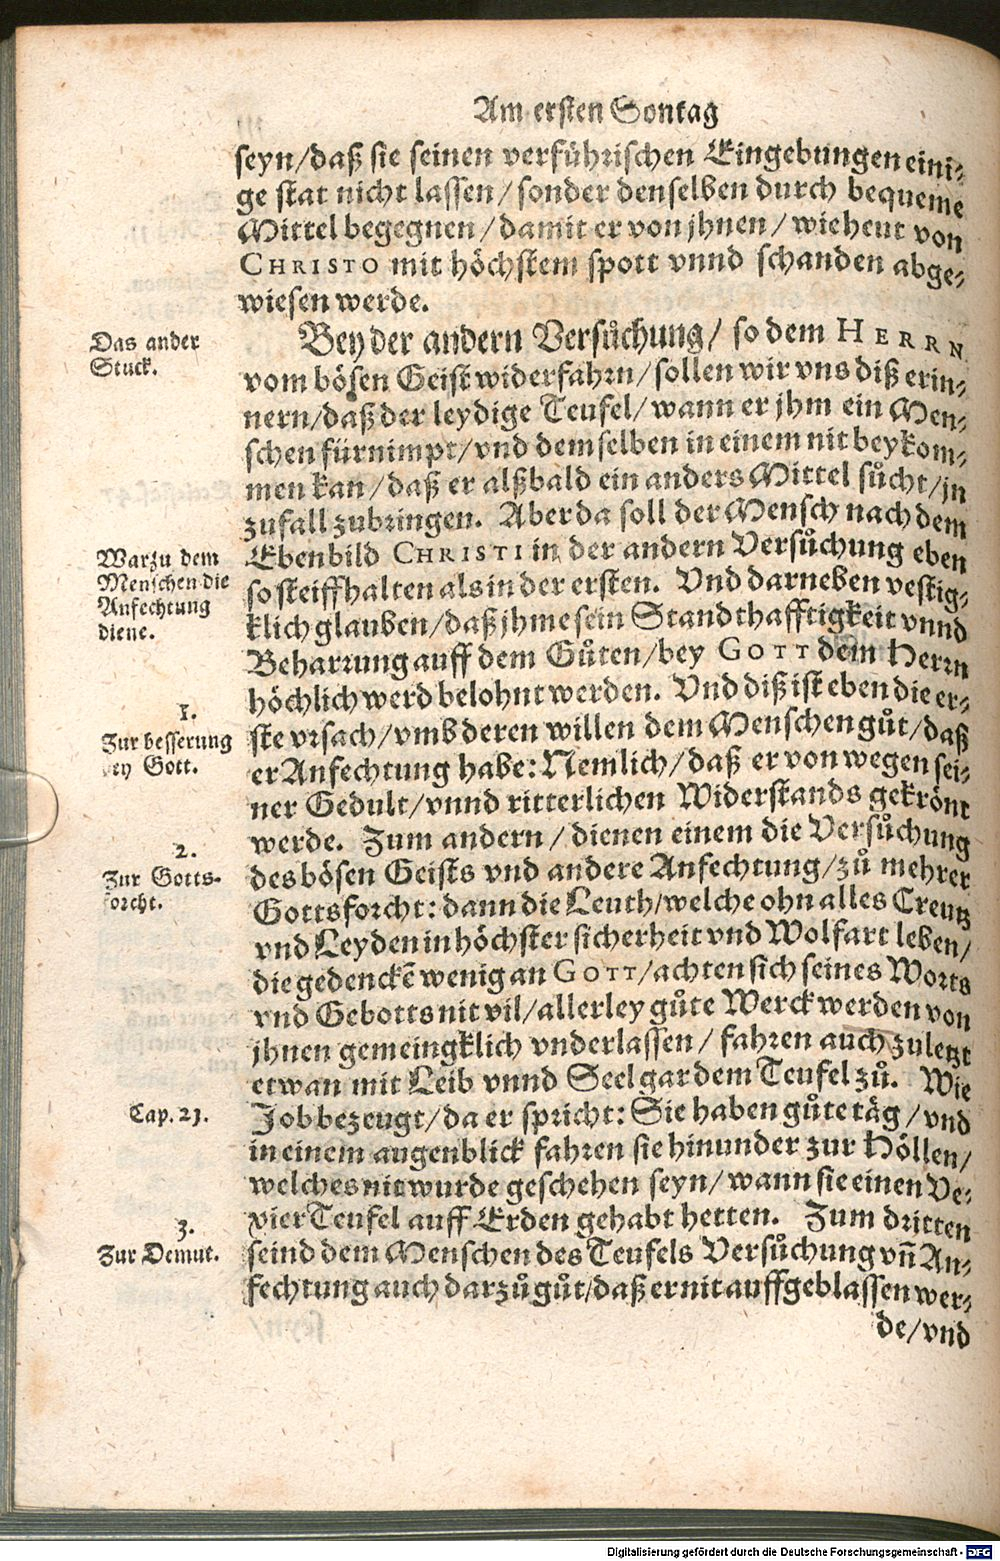 Am ersten Sontag
seyn/daß sie seinen verführischen Eingebungen eini⸗
ge stat nicht lassen/sonder denselben durch bequeme
Mittel begegnen/damit er von jhnen/wie heut von
CHRISTO mit höchstem spott vnnd schanden abge⸗
wiesen werde.
Das ander
Stuck.
Bey der andern Versůchung/ so dem HERRN
vom bösen Geist widerfahrn/sollen wir vns diß erin⸗
nern/daß der leydige Teufel/wann er jhm ein Men⸗
schen fürnimpt/vnd demselben in einem nit beykom⸗
men kan/daß er alßbald ein anders Mittel sůcht/jn
zufall zubringen. Aber da soll der Mensch nach dem
Warzu dem
Menschen die
Anfechtung
diene.
Ebenbild CHRISTI in der andern Versůchung eben
so steiff halten als in der ersten. Vnd darneben vestig⸗
klich glauben/daß jhme sein Standthafftigkeit vnnd
Beharrung auff dem Gůten/bey GOTT dem Herrn
höchlich werd belohnt werden. Vnd diß ist eben die er⸗
1.
Zur besserung
bey Gott.
ste vrsach/vmb deren willen dem Menschen gůt/daß
er Anfechtung habe: Nemlich/daß er von wegen sei⸗
ner Gedult/vnnd ritterlichen Widerstands gekrönt
werde. Zum andern/dienen einem die Versůchung
2.
Zur Gotts-
forcht.
des bösen Geists vnd andere Anfechtung/zů mehrer
Gottsforcht: dann die Leuth/welche ohn alles Creutz
vnd Leyden in höchster sicherheit vnd Wolfart leben/
die gedenckẽ wenig an GOTT/achten sich seines Worts
vnd Gebotts nit vil/allerley gůte Werck werden von
jhnen gemeingklich vnderlassen/ fahren auch zuletzt
etwan mit Leib vnnd Seel gar dem Teufel zů. Wie
Cap. 21.
Job bezeugt/da er spricht: Sie haben gůte täg/vnd
in einem augenblick fahren sie hinunder zur Höllen/
welches nit wurde geschehen seyn/wann sie einen Ve⸗
xier Teufel auff Erden gehabt hetten. Zum dritten
3.
Zur Demut.
seind dem Menschen des Teufels Versůchung vñ An⸗
fechtung auch darzů gůt/daß er nit auffgeblassen wer⸗
de/vnd
Digitalisierung gefördert durch die Deutsche Forschungsgemeinschaft - DFG